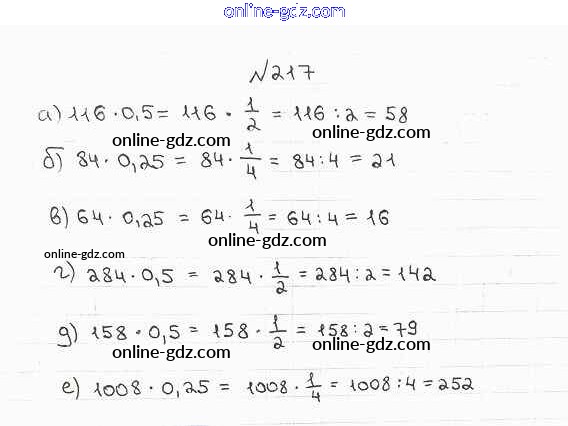 online-gdz.com
№217
а) 116 · 0,5 = 116 · 1/2 = 116 : 2 = 58
online-gdz.com online-gdz.com
б) 84 · 0,25 = 84 · 1/4 = 84 : 4 = 21
в) 64 · 0,25 = 64 · 1/4 = 64 : 4 = 16
online-gdz.com
online-gdz.com
г) 284 · 0,5 = 284 · 1/2 = 284 : 2 = 142
д) 158 · 0,5 = 158 · 1/2 = 158 : 2 = 79
online-gdz.com online-gdz.com
е) 1008 · 0,25 = 1008 · 1/4 = 1008 : 4 = 252